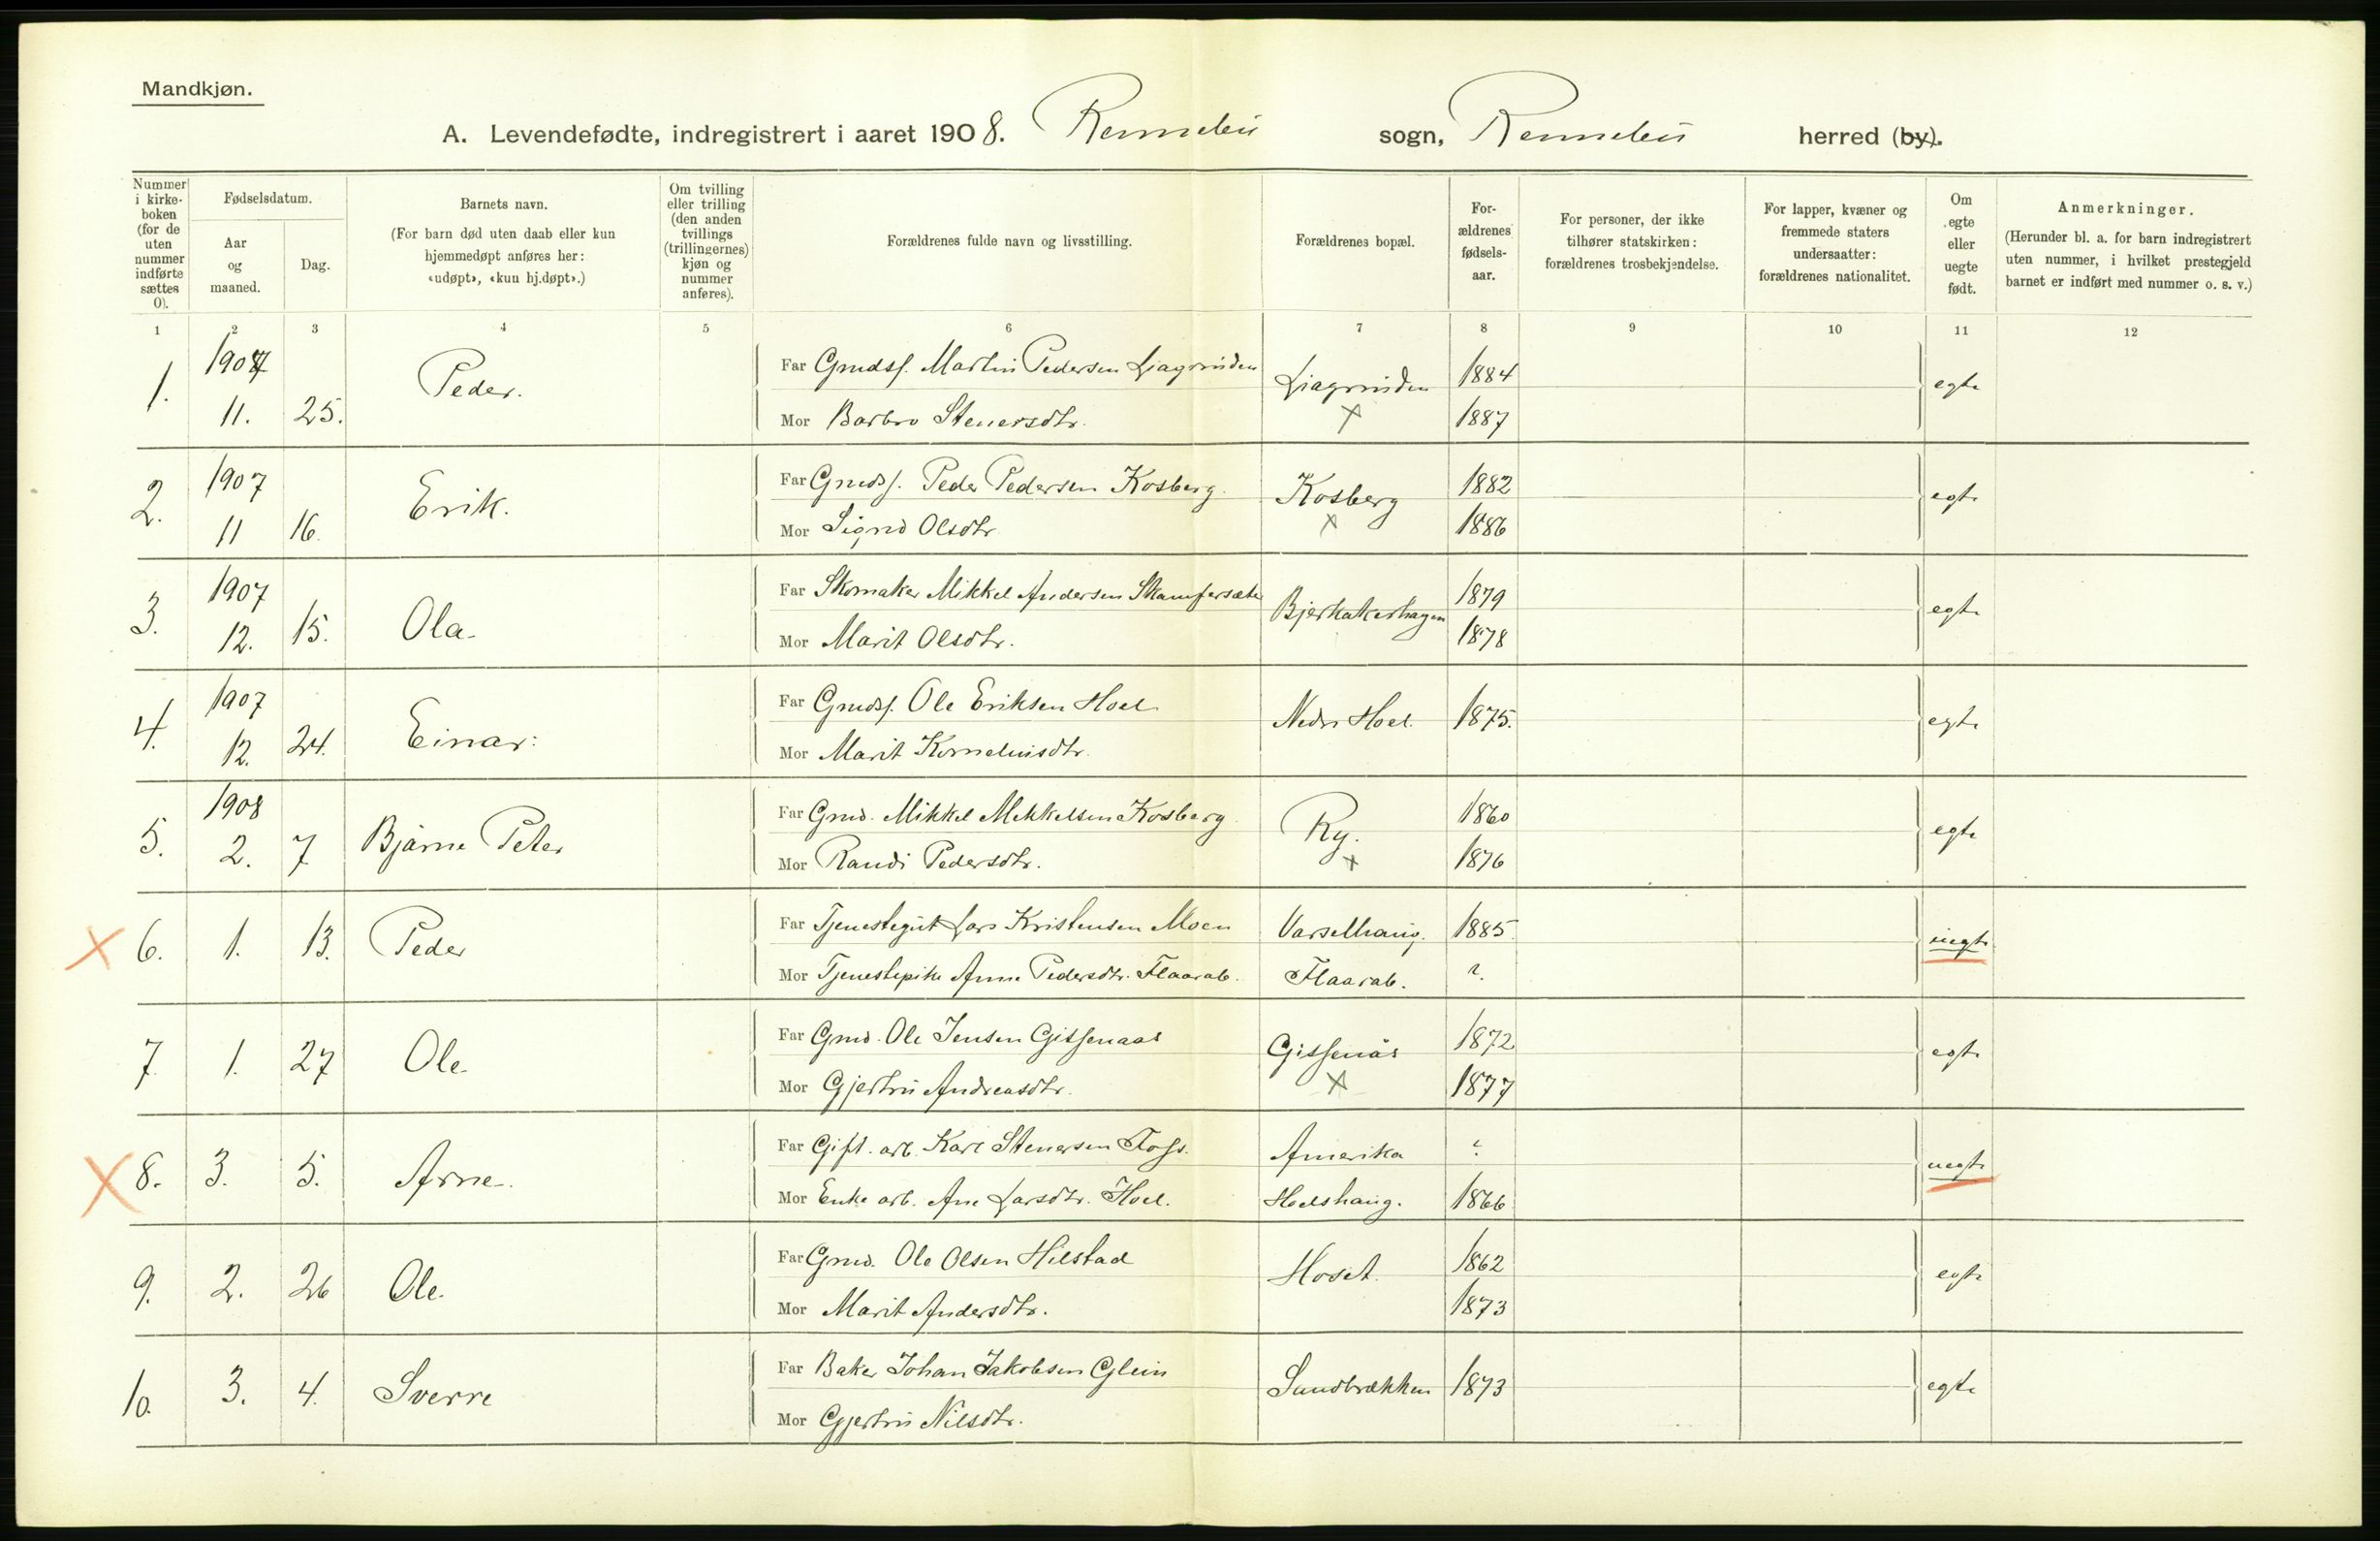 Mandkjøn.
A. Levendefødte, indregistrert i aaret 1908. Rennebu sogn, Rennebu herred (by).
Nummer i kirkeboken (for de uten nummer indførte sættes 0).
Fødselsdatum.
Aar og maaned.
Dag.
Barnets navn.
(For barn død uten daab eller kun hjemmedøpt anføres her: «udøpt», «kun hj.døpt».)
Om tvilling eller trilling (den anden tvillings (trillingernes) kjøn og nummer anføres).
Forældrenes fulde navn og livsstilling.
Forældrenes bopæl.
For-ældrenes fødsels-aar.
For personer, der ikke tilhører statskirken: forældrenes trosbekjendelse.
For lapper, kvæner og fremmede staters undersaatter: forældrenes nationalitet.
Om egte eller uegte født.
Anmerkninger.
(Herunder bl. a. for barn indregistrert uten nummer, i hvilket prestegjeld barnet er indført med nummer o. s. v.)
1 2 3 4 5 6 7 8 9 10 11 12
1. 1907 11. 25. Peder. Far Gmdsf. Martin Pedersen Liagrinden Liagrinden 1884 egte
Mor Barbro Stenersdtr. × 1887
2. 1907 11 16. Erik. Far Gmdsf. Peder Pedersen Kosberg. Kosberg 1882 egte
Mor Sigrid Olsdtr × 1886
3. 1907 12. 15. Ola. Far Skomaker Mikkel Andersen Skamfersæter Bjerkakerhagen 1879 egte
Mor Marit Olsdtr. 1878
4. 1907 12. 24. Einar. Far Gmdsf. Ole Eriksen Hoel Nedre Hoel. 1875. egte
Mor Marit Korneliusdtr.
5. 1908 2. 7 Bjarne Peter Far Gmd. Mikkel Mikkelsen Kosberg Ry. 1860 egte
Mor Randi Pedersdtr. × 1876
× 6. 1. 13. Peder Far Tjenestegut Lars Kristensen Moen Varselhaug. 1885. uegte
Mor Tjenestepike Anne Pedersdtr. Flaarab. Flaarab. ?
7. 1. 27 Ole Far Gmd. Ole Jensen Gissenaas Gissenås 1872 egte
Mor Gjertru Andreasdtr. × 1877
× 8. 3. 5. Arne. Far Gift. arb. Karl Stenersen Foss. Amerika ? uegte
Mor Enke arb. Ane Larsdtr. Hoel. Hoelshaug. 1866
9. 2. 26 Ole Far Gmd. Ole Olsen Hilstad Hoset. 1862 egte
Mor Marit Andersdtr. 1873
10. 3. 4. Sverre Far Baker Johan Jakobsen Glein Sundbrækken 1873 egte
Mor Gjertru Nilsdtr.